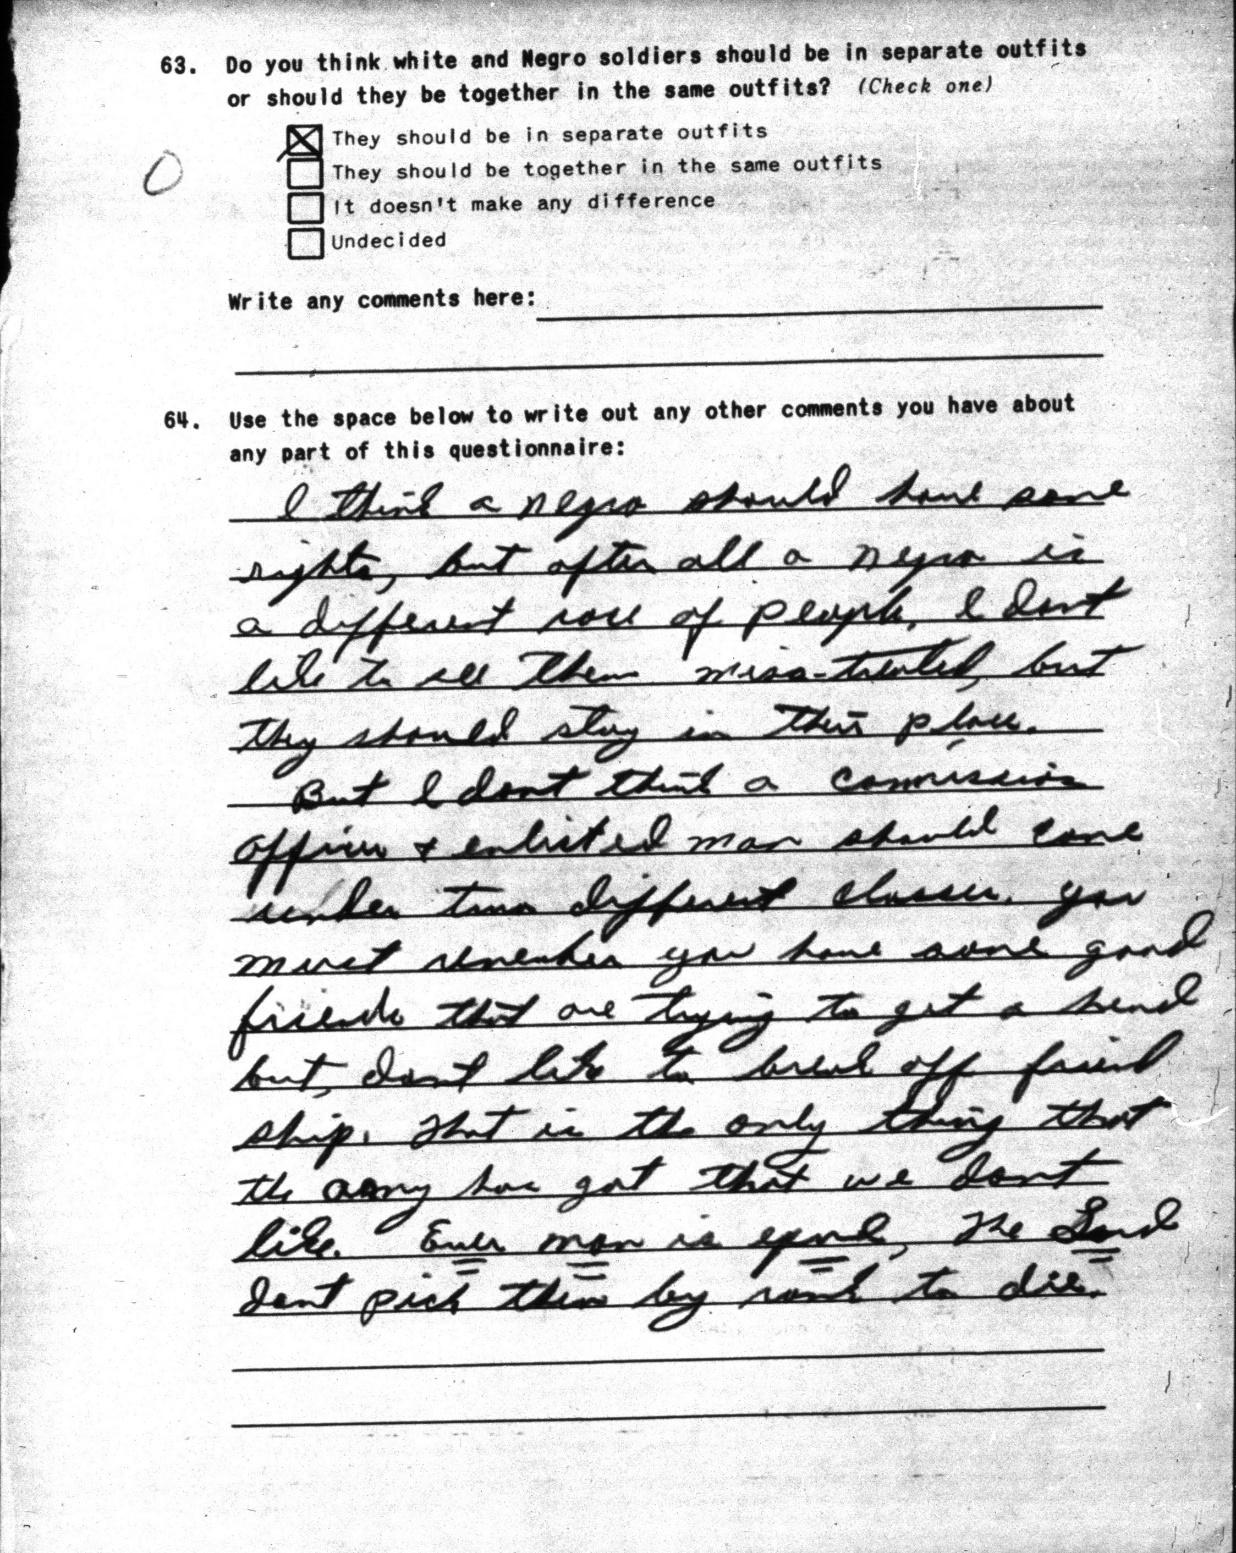 63. Do you think white and Negro soldiers should be in separate outfits
or should they be together in the same outfits? (Check one)
They should be in separate outfits
They should be together in the same outfits
It doesn't make any difference
Undecided
0
Write any comments here:
64. Use the space below to write out any other comments you have about
any part of this questionnaire:
I think a negro should have some
rights, but after all a negro is
a different race of people, I dont
like to see them miss-treated, but
they should stay in their place.
But I dont think a commission
officer & enlisted man should come
under two different classes. you
must remember you have some good
friends that are trying to get a head
but, dont like to break off friend
ship. That is the only thing that
the army has got that we dont
like. Ever man is equal, The Lord
dont pick them by rank to die.